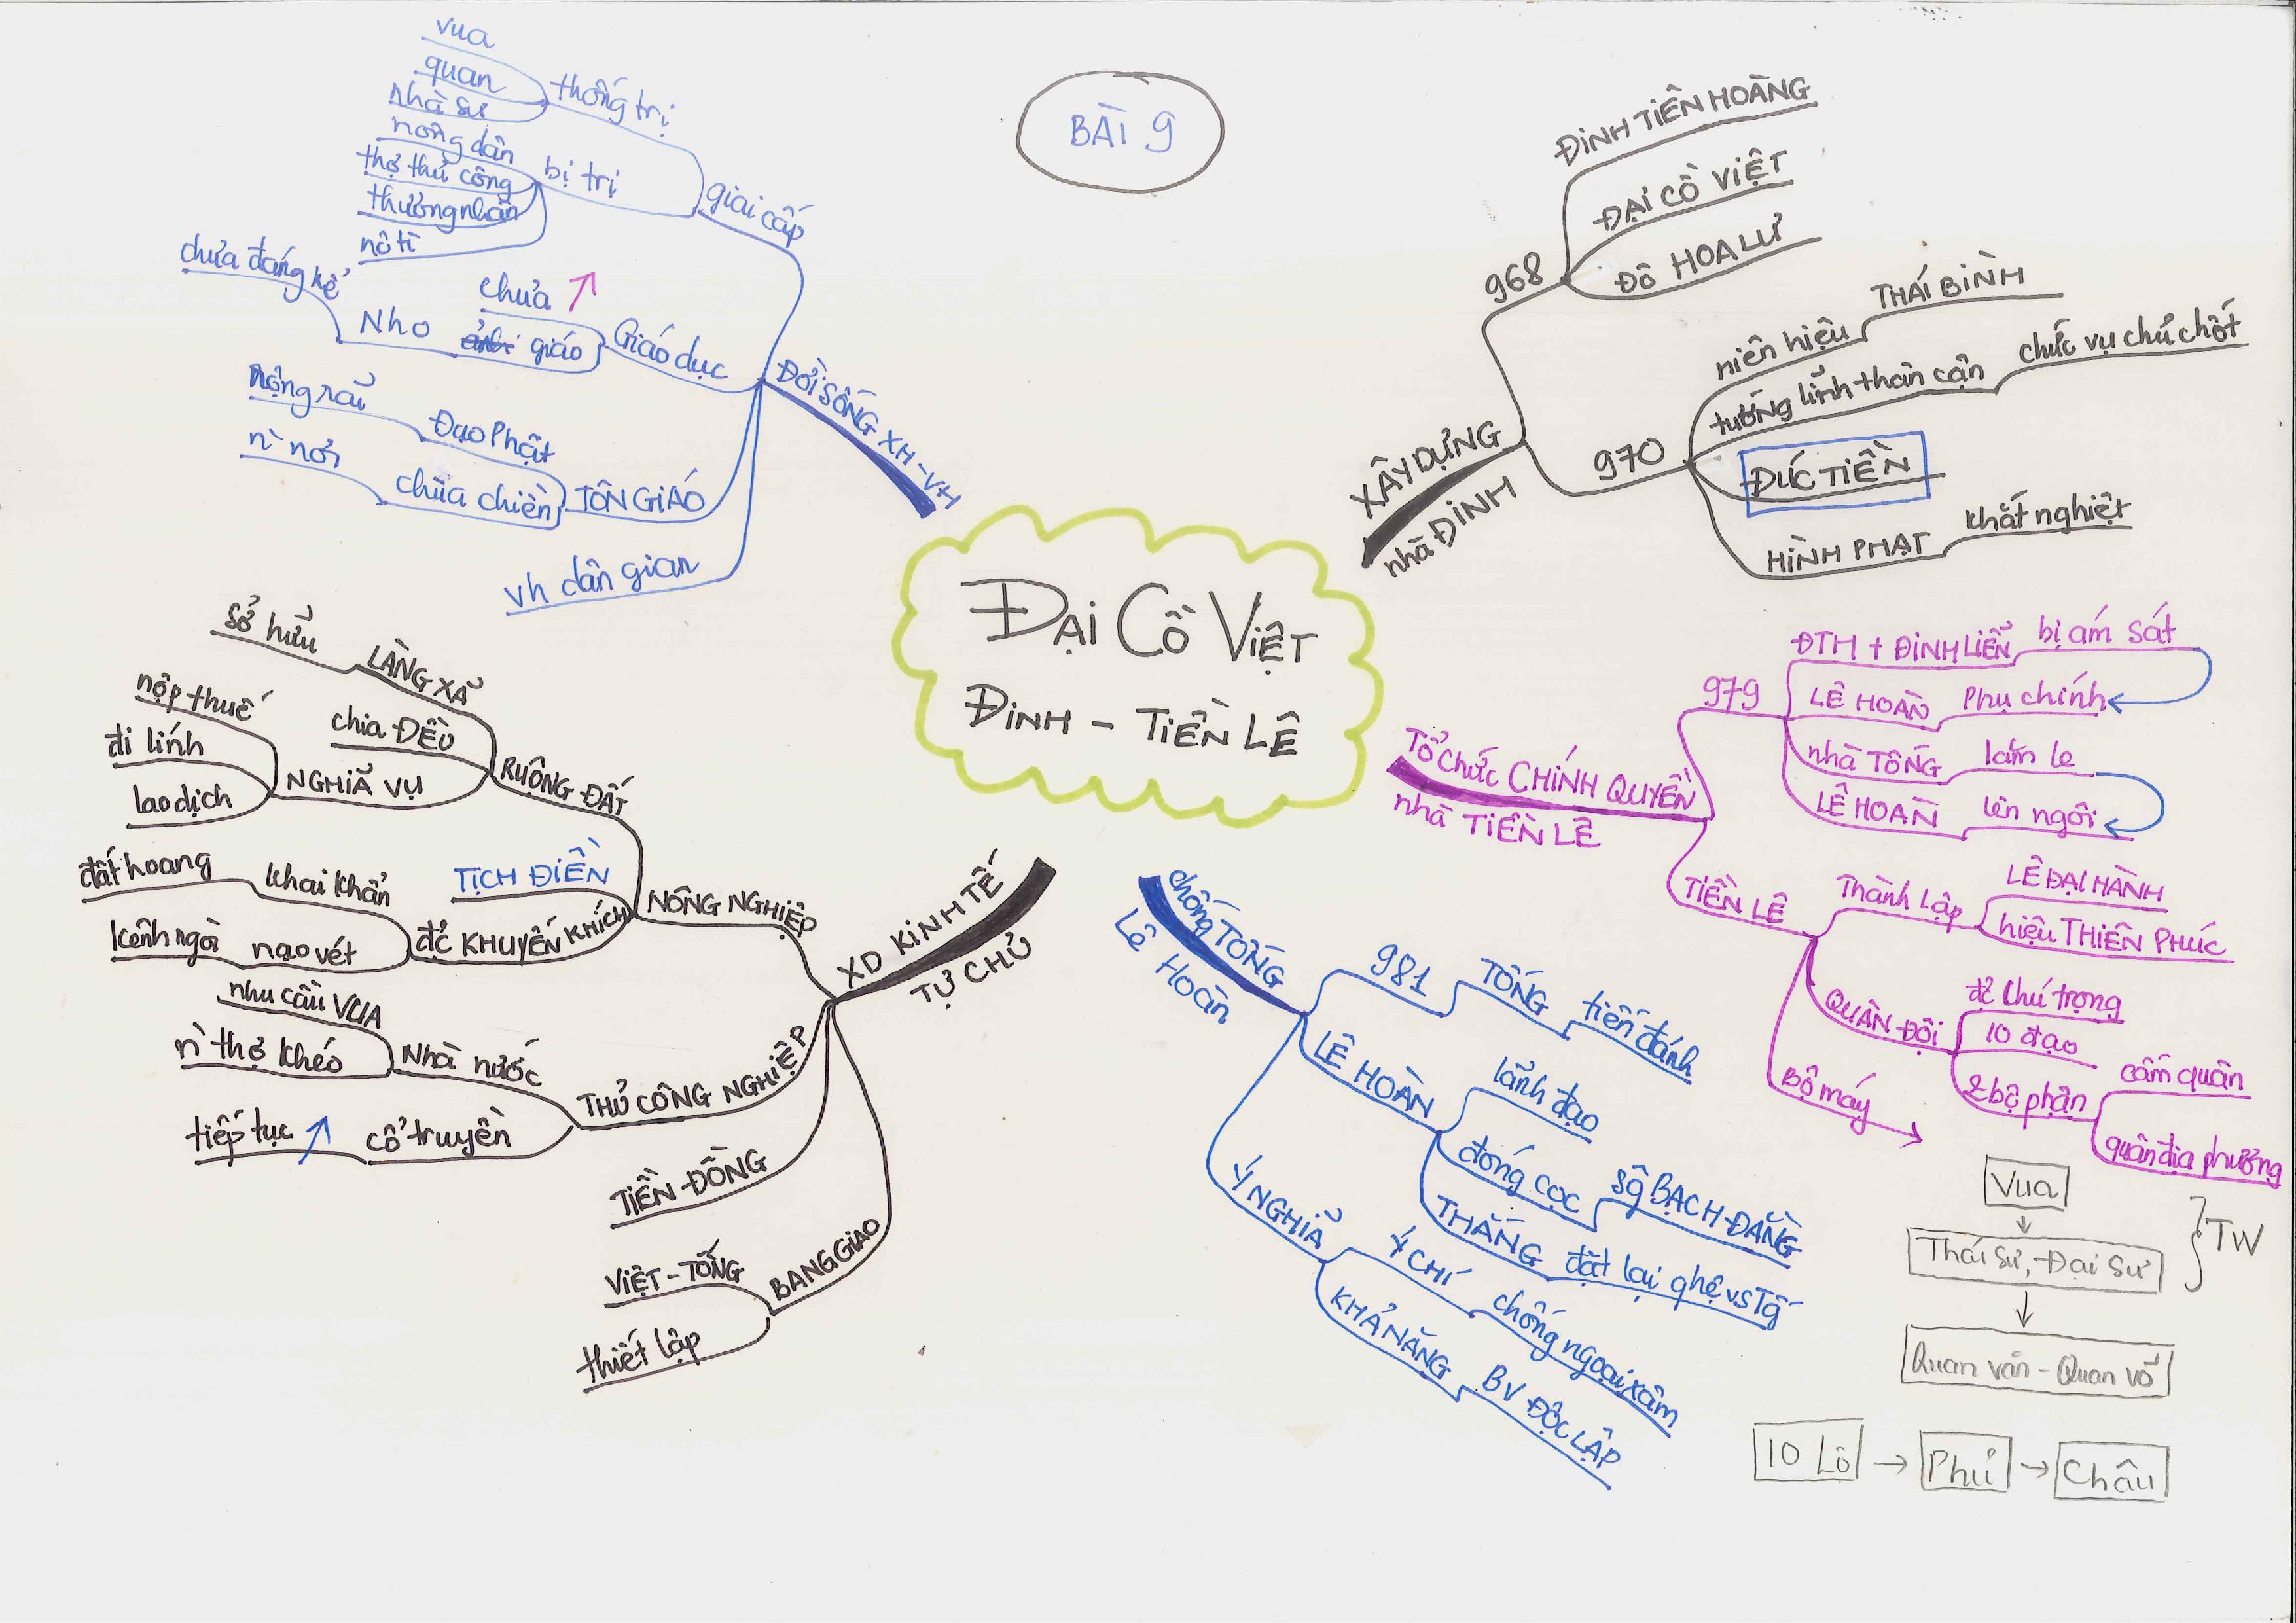 BÀI 9
Đại Cồ Việt
ĐINH - TIỀN LÊ
XÂY DỰNG
nhà ĐINH
968
ĐINH TIÊN HOÀNG
ĐẠI CỒ VIỆT
ĐÔ HOA LƯ
970
niên hiệu
THÁI BÌNH
tướng lĩnh thân cận
chức vụ chủ chốt
ĐÚC TIỀN
HÌNH PHẠT
khắt nghiệt
Tổ chức CHÍNH QUYỀN
nhà TIỀN LÊ
979
ĐTH + ĐINH LIỄN
bị ám sát
LÊ HOÀN
Phụ chính
nhà TỐNG
lăm le
LÊ HOÀN
lên ngôi
TIỀN LÊ
Thành lập
LÊ ĐẠI HÀNH
hiệu THIÊN PHÚC
QUÂN ĐỘI
đc chú trọng
10 đạo
2 bộ phận
cấm quân
quân địa phương
Bộ máy
Vua
Thái sư, Đại sư
TW
Quan văn - Quan võ
10 Lộ → Phủ → Châu
chống TỐNG
Lê Hoàn
981
TỐNG
tiến đánh
LÊ HOÀN
lãnh đạo
đóng cọc
sg BẠCH ĐẰNG
THẮNG
đặt lại qhệ vs Tg
Ý NGHĨA
Ý CHÍ
chống ngoại xâm
KHẢ NĂNG
BV ĐỘC LẬP
XD KINH TẾ
TỰ CHỦ
NÔNG NGHIỆP
RUỘNG ĐẤT
LÀNG XÃ
sở hữu
chia ĐỀU
NGHĨA VỤ
nộp thuế
đi lính
lao dịch
TỊCH ĐIỀN
đc KHUYẾN KHÍCH
khai khẩn
đất hoang
nạo vét
kênh ngòi
THỦ CÔNG NGHIỆP
Nhà nước
nhu cầu VUA
n` thợ khéo
cổ truyền
tiếp tục ↗
TIỀN ĐỒNG
BANG GIAO
VIỆT - TỐNG
thiết lập
ĐỜI SỐNG XH - VH
giai cấp
thống trị
vua
quan
nhà sư
bị trị
nông dân
thợ thủ công
thương nhân
nô tì
Giáo dục
chưa ↗
giáo
Nho
chưa đáng kể
TÔN GIÁO
Đạo Phật
rộng rãi
chùa chiền
n` nơi
vh dân gian